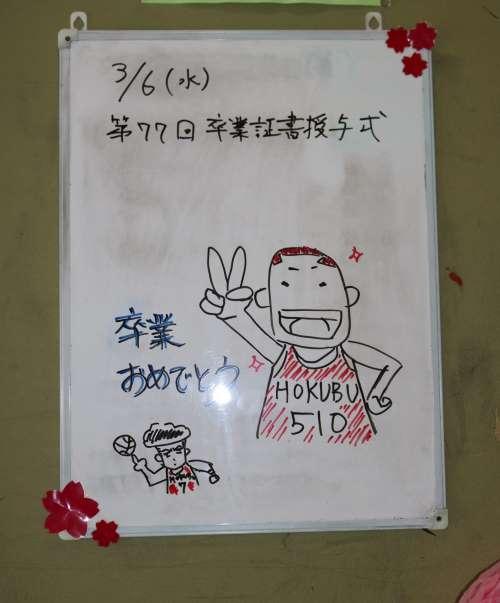 3/6(水)
第77回 卒業証書授与式
卒業
おめでとう
HOKUBU
510
7